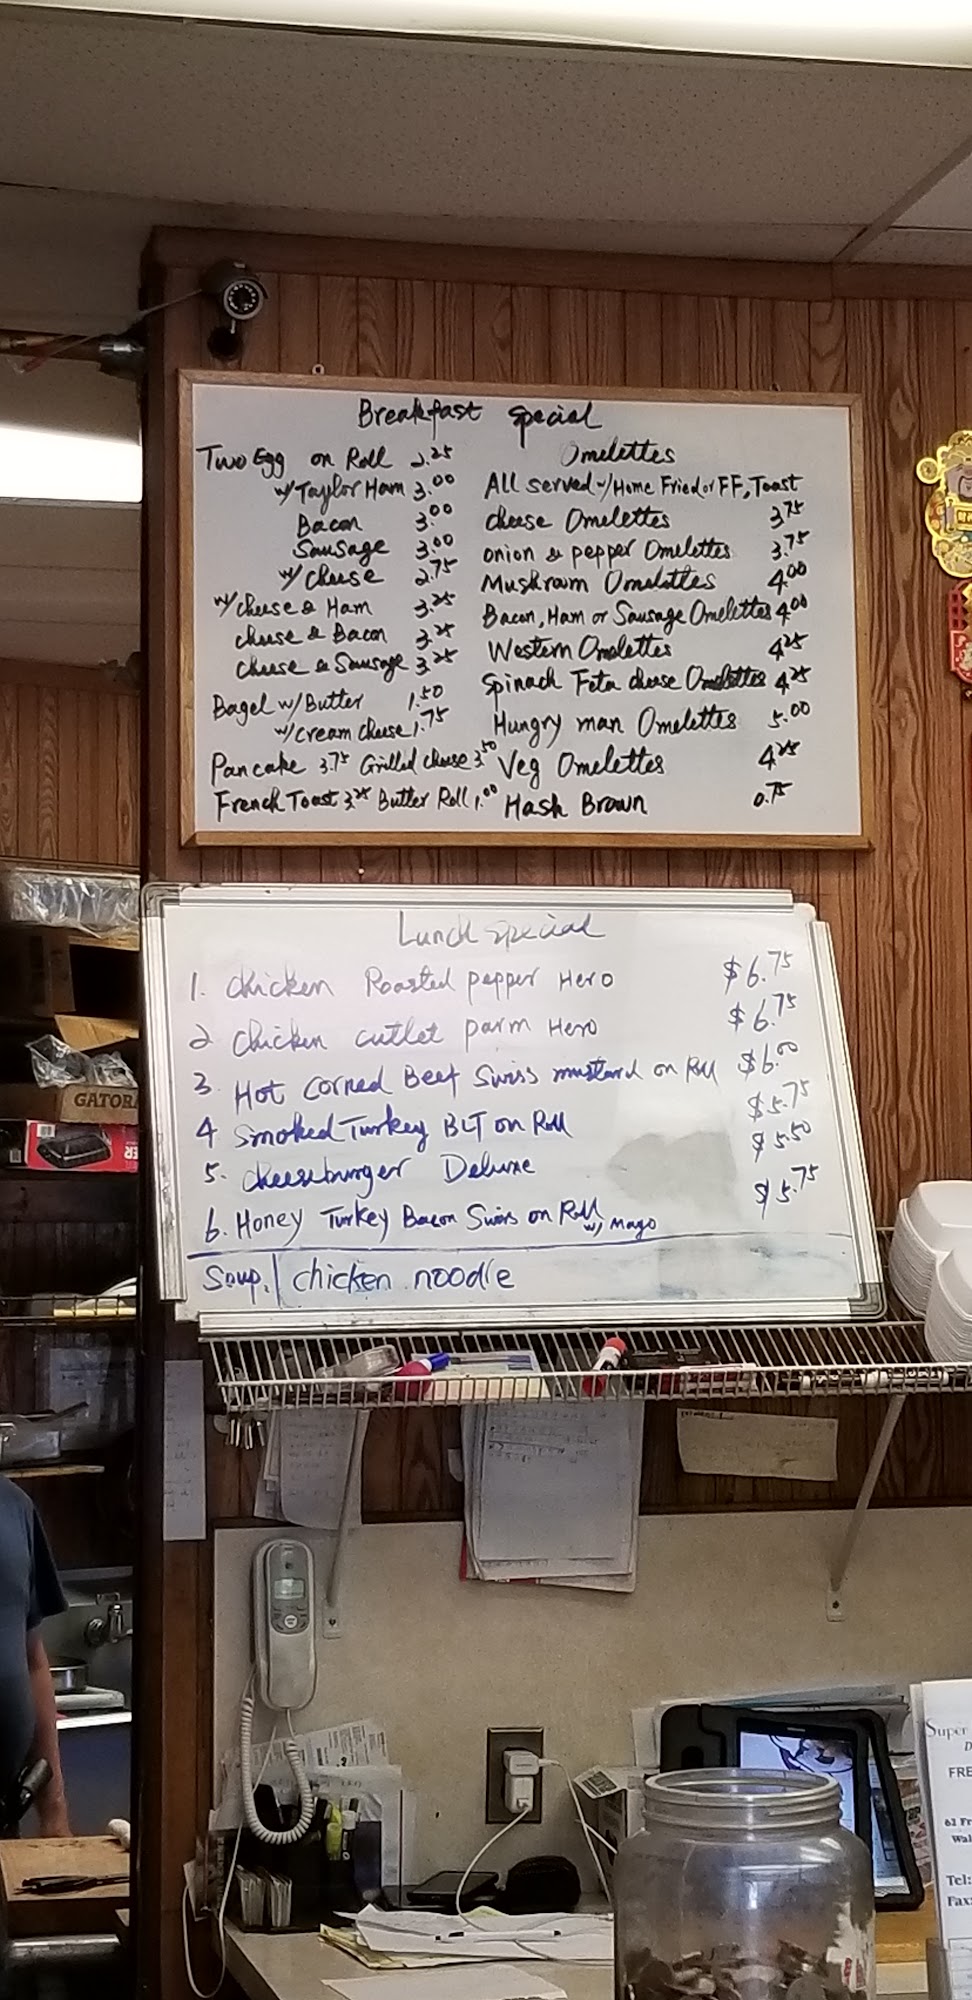 Breakfast special
Two Egg on Roll 2.25
w/ Taylor Ham 3.00
Bacon 3.00
Sausage 3.00
w/ cheese 2.75
w/ cheese & Ham 3.25
cheese & Bacon 3.25
cheese & Sausage 3.25
Bagel w/ Butter 1.50
w/ cream cheese 1.75
Pancake 3.75 Grilled cheese 3.50
French Toast 3.25 Butter Roll 1.00
Omelettes
All served w/ Home Fried or FF, Toast
cheese Omelettes 3.75
onion & pepper Omelettes 3.75
Mushroom Omelettes 4.00
Bacon, Ham or Sausage Omelettes 4.00
Western Omelettes 4.25
Spinach Feta cheese Omelettes 4.25
Hungry man Omelettes 5.00
Veg Omelettes 4.25
Hash Brown 0.75
Lunch special
1. chicken Roasted pepper Hero $6.75
2 chicken cutlet parm Hero $6.75
3. Hot corned Beef Swiss mustard on Roll $6.00
4 smoked Turkey BLT on Roll $5.75
5. cheeseburger Deluxe $5.50
6. Honey Turkey Bacon Swiss on Roll $5.75
w/ Mayo
Soup. chicken noodle
GATORA
Super
FRE
62 Fr
Wal
Tel:
Fax: